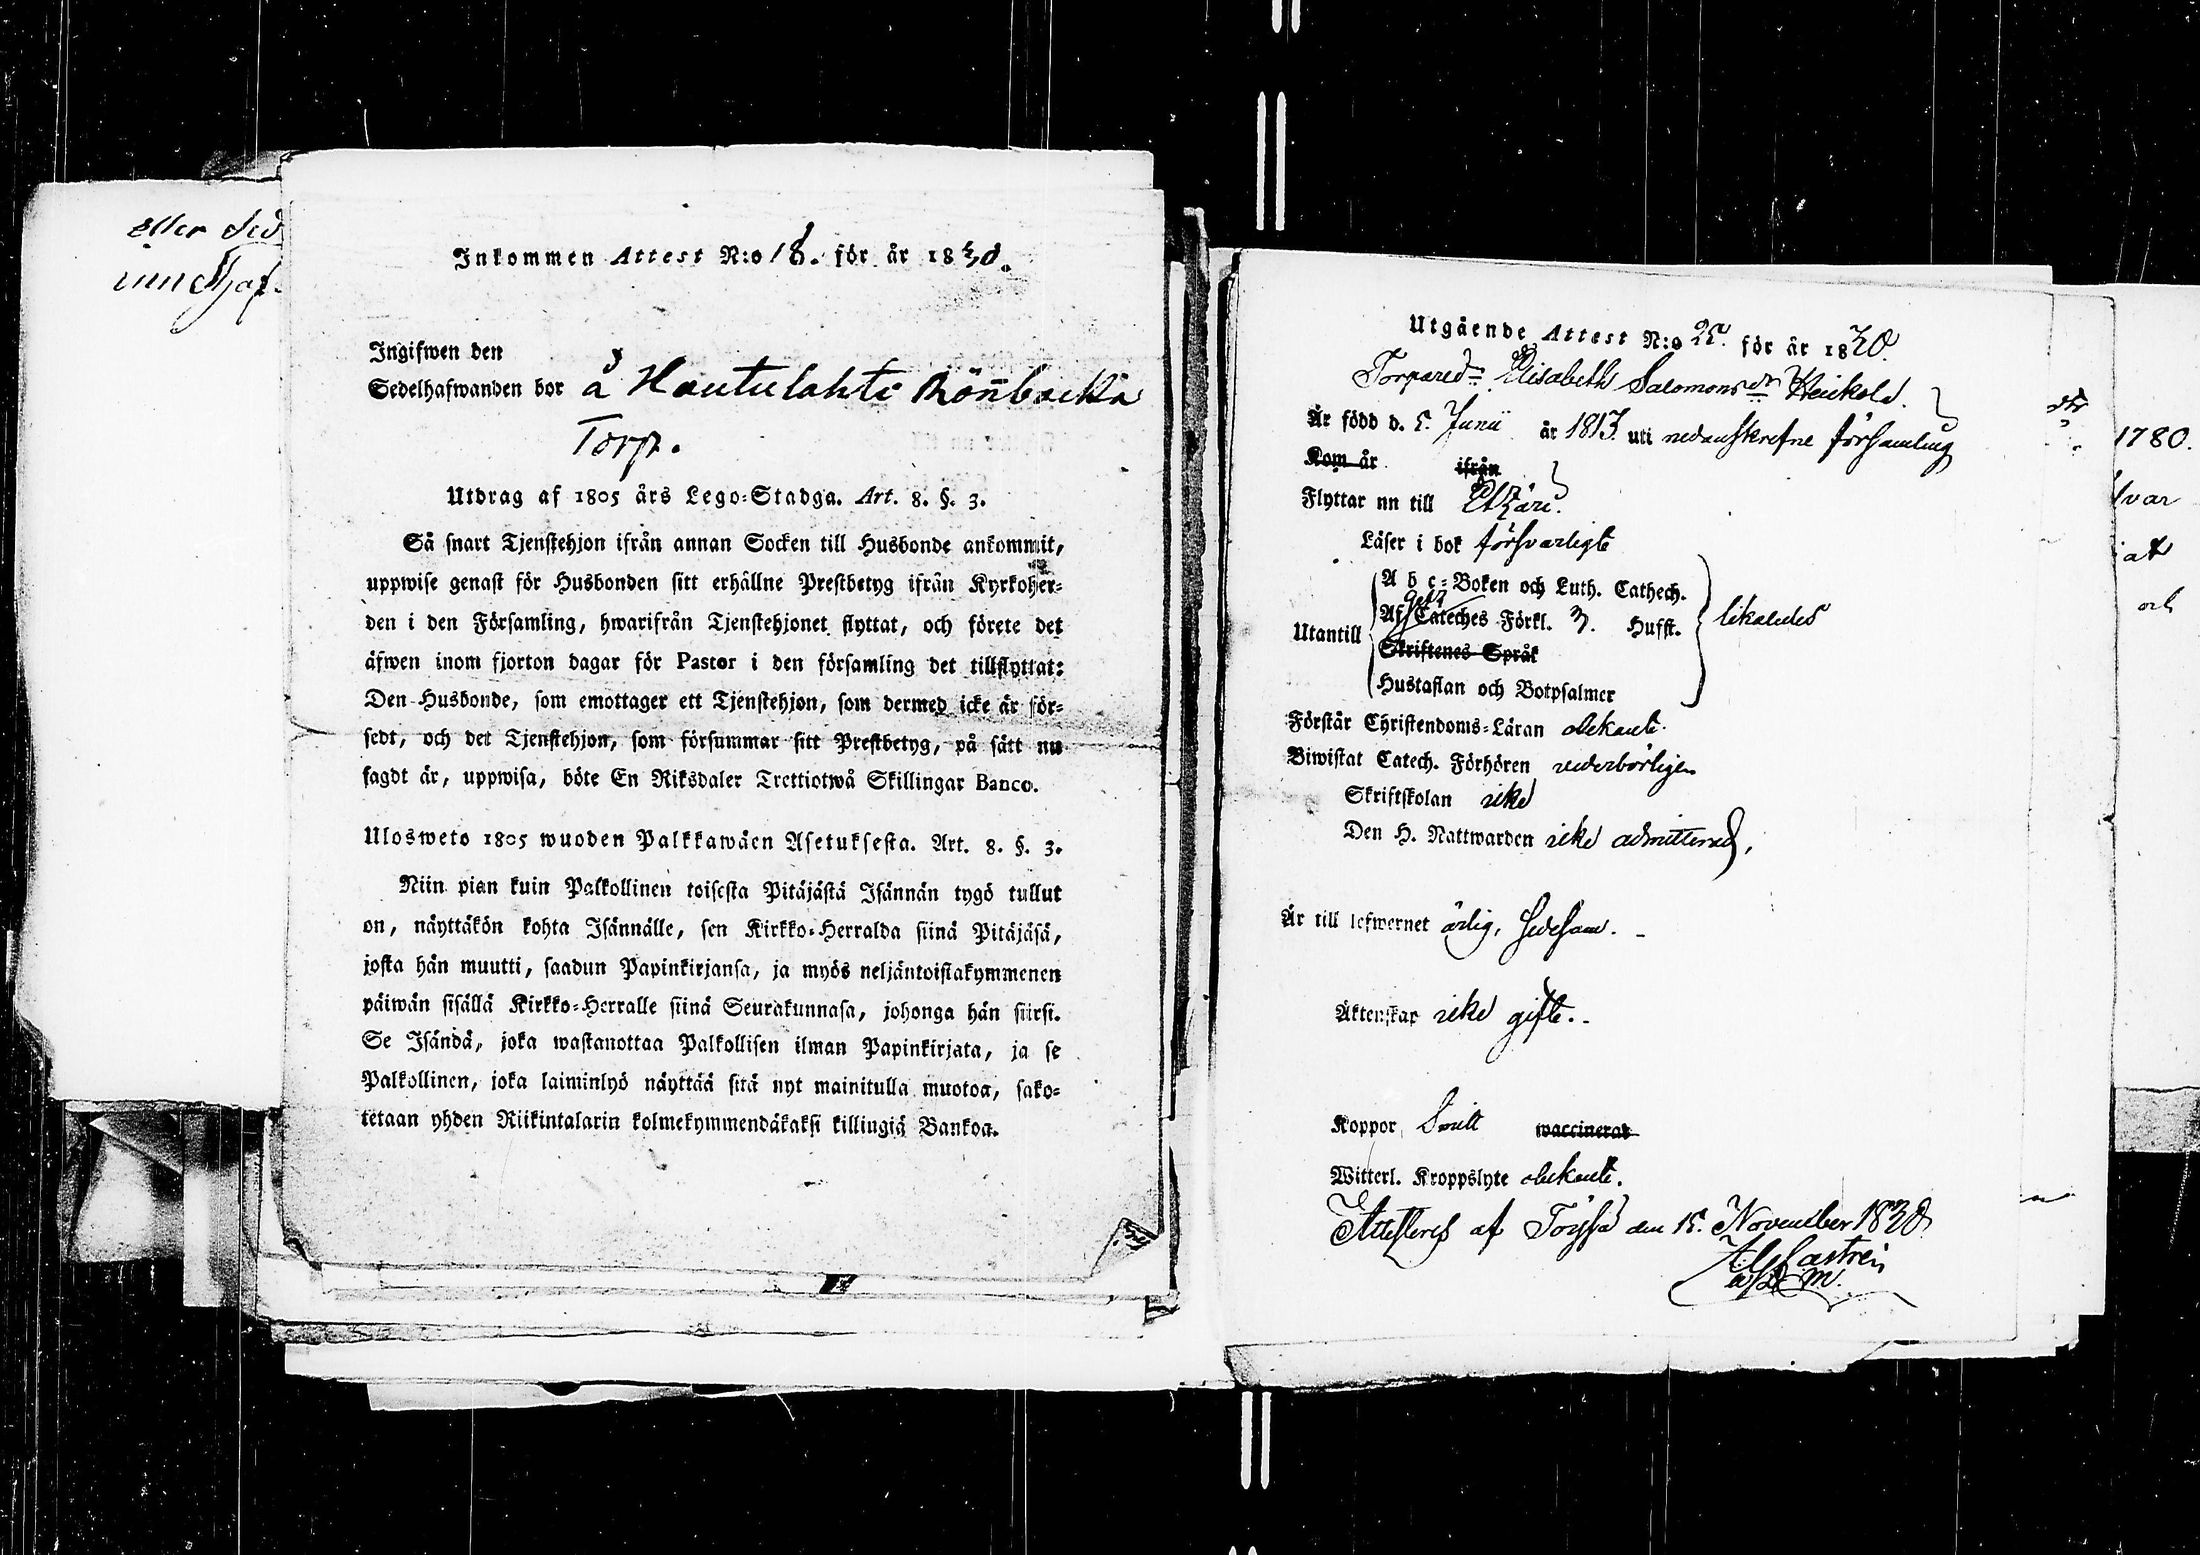 eller
Inkommen Attest N:o 18. för år 1830.
Ingifwen den
Sedelhafwanden bor å Hautulahti Rönbacka
Torp.
Utdrag af 1805 års Lego-Stadga. Art. 8. §. 3.
Så snart Tjenstehjon ifrån annan Socken till Husbonde ankommit,
uppwise genast för Husbonden sitt erhållne Prestbetyg ifrån Kyrkoher-
den i den Församling, hwarifrån Tjenstehjonet flyttat, och förete det
äfwen inom fjorton dagar för Pastor i den församling det tillflyttat:
Den Husbonde, som emottager ett Tjenstehjon, som dermed icke är för-
sedt, och det Tjenstehjon, som försummar sitt Prestbetyg, på sätt nu
sagdt är, uppwisa, böte En Riksdaler Trettiotwå Skillingar Banco.
Ulosweto 1805 wuoden Palkkawäen Asetuksesta. Art. 8. §. 3.
Niin pian kuin Palkollinen toisesta Pitäjästä Isännän tygö tullut
on, näyttäkön kohta Isännälle, sen Kirkko-Herralda siinä Pitäjäsä,
josta hän muutti, saadun Papinkirjansa, ja myös neljäntoistakymmenen
päiwän sisällä Kirkko-Herralle siinä Seurakunnasa, johonga hän siirsi.
Se Isändä, joka wastanottaa Palkollisen ilman Papinkirjata, ja se
Palkollinen, joka laiminlyö näyttää sitä nyt mainitulla muotoa, sako-
tetaan yhden Riikintalarin kolmekymmendäkaksi killingiä Bankoa.
Utgående Attest N:o 25. för år 1830.
Elisabeth Salomonsdr
Är född d. 5. Junii år 1813. uti nedanskrefne församling
Kom år ifrån
Flyttar nu till Etzäri.
Läser i bok försvarligt
A b c-Boken och Luth. Cathech.
Utantill Af Cateches Förkl. 3. Husst. likaledes
Skriftenes Språk
Hustaflan och Botpsalmer
Förstår Christendoms-Läran obekant.
Biwistat Catech. Förhören vederbörligen
Skriftskolan icke
Den H. Nattwarden icke admitterad,
Är till lefwernet ärlig, sedesam.
Äktenskap icke gift.
Koppor waccinerad
Witterl. Kroppslyte obekant.
Attesteras af Töysä den 15. November 1830
Castrén
1780.
var
at
och